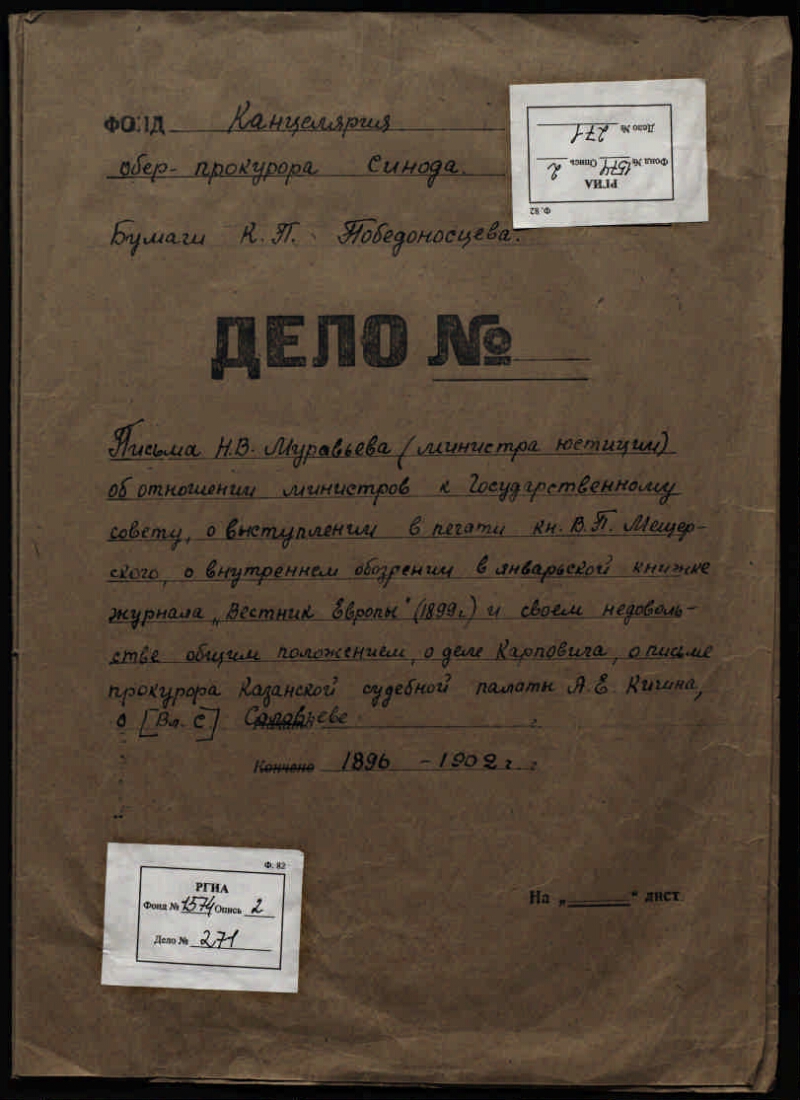 ФОНД Канцелярия
обер-прокурора Синода.
Бумаги К.П. Победоносцева.
РГИА
Фонд № 1574 Опись 2
Дело № 271
Ф. 82
ДЕЛО №
Письма Н.В. Муравьева (министра юстиции)
об отношении министров к Государственному
совету, о выступлении в печати кн. В.П. Мещер-
ского, о внутреннем обозрении в январьской книжке
журнала „Вестник Европы" (1899г.) и своем недоволь-
стве общим положением, о деле Карповича, о письме
прокурора Казанской судебной палаты А.Е. Кичина,
о [Вл. С] Соловьеве г.
Кончено 1896 - 1902 г. г.
Ф. 82
РГИА
Фонд № 1574 Опись 2
Дело № 271
На „ “ лист.